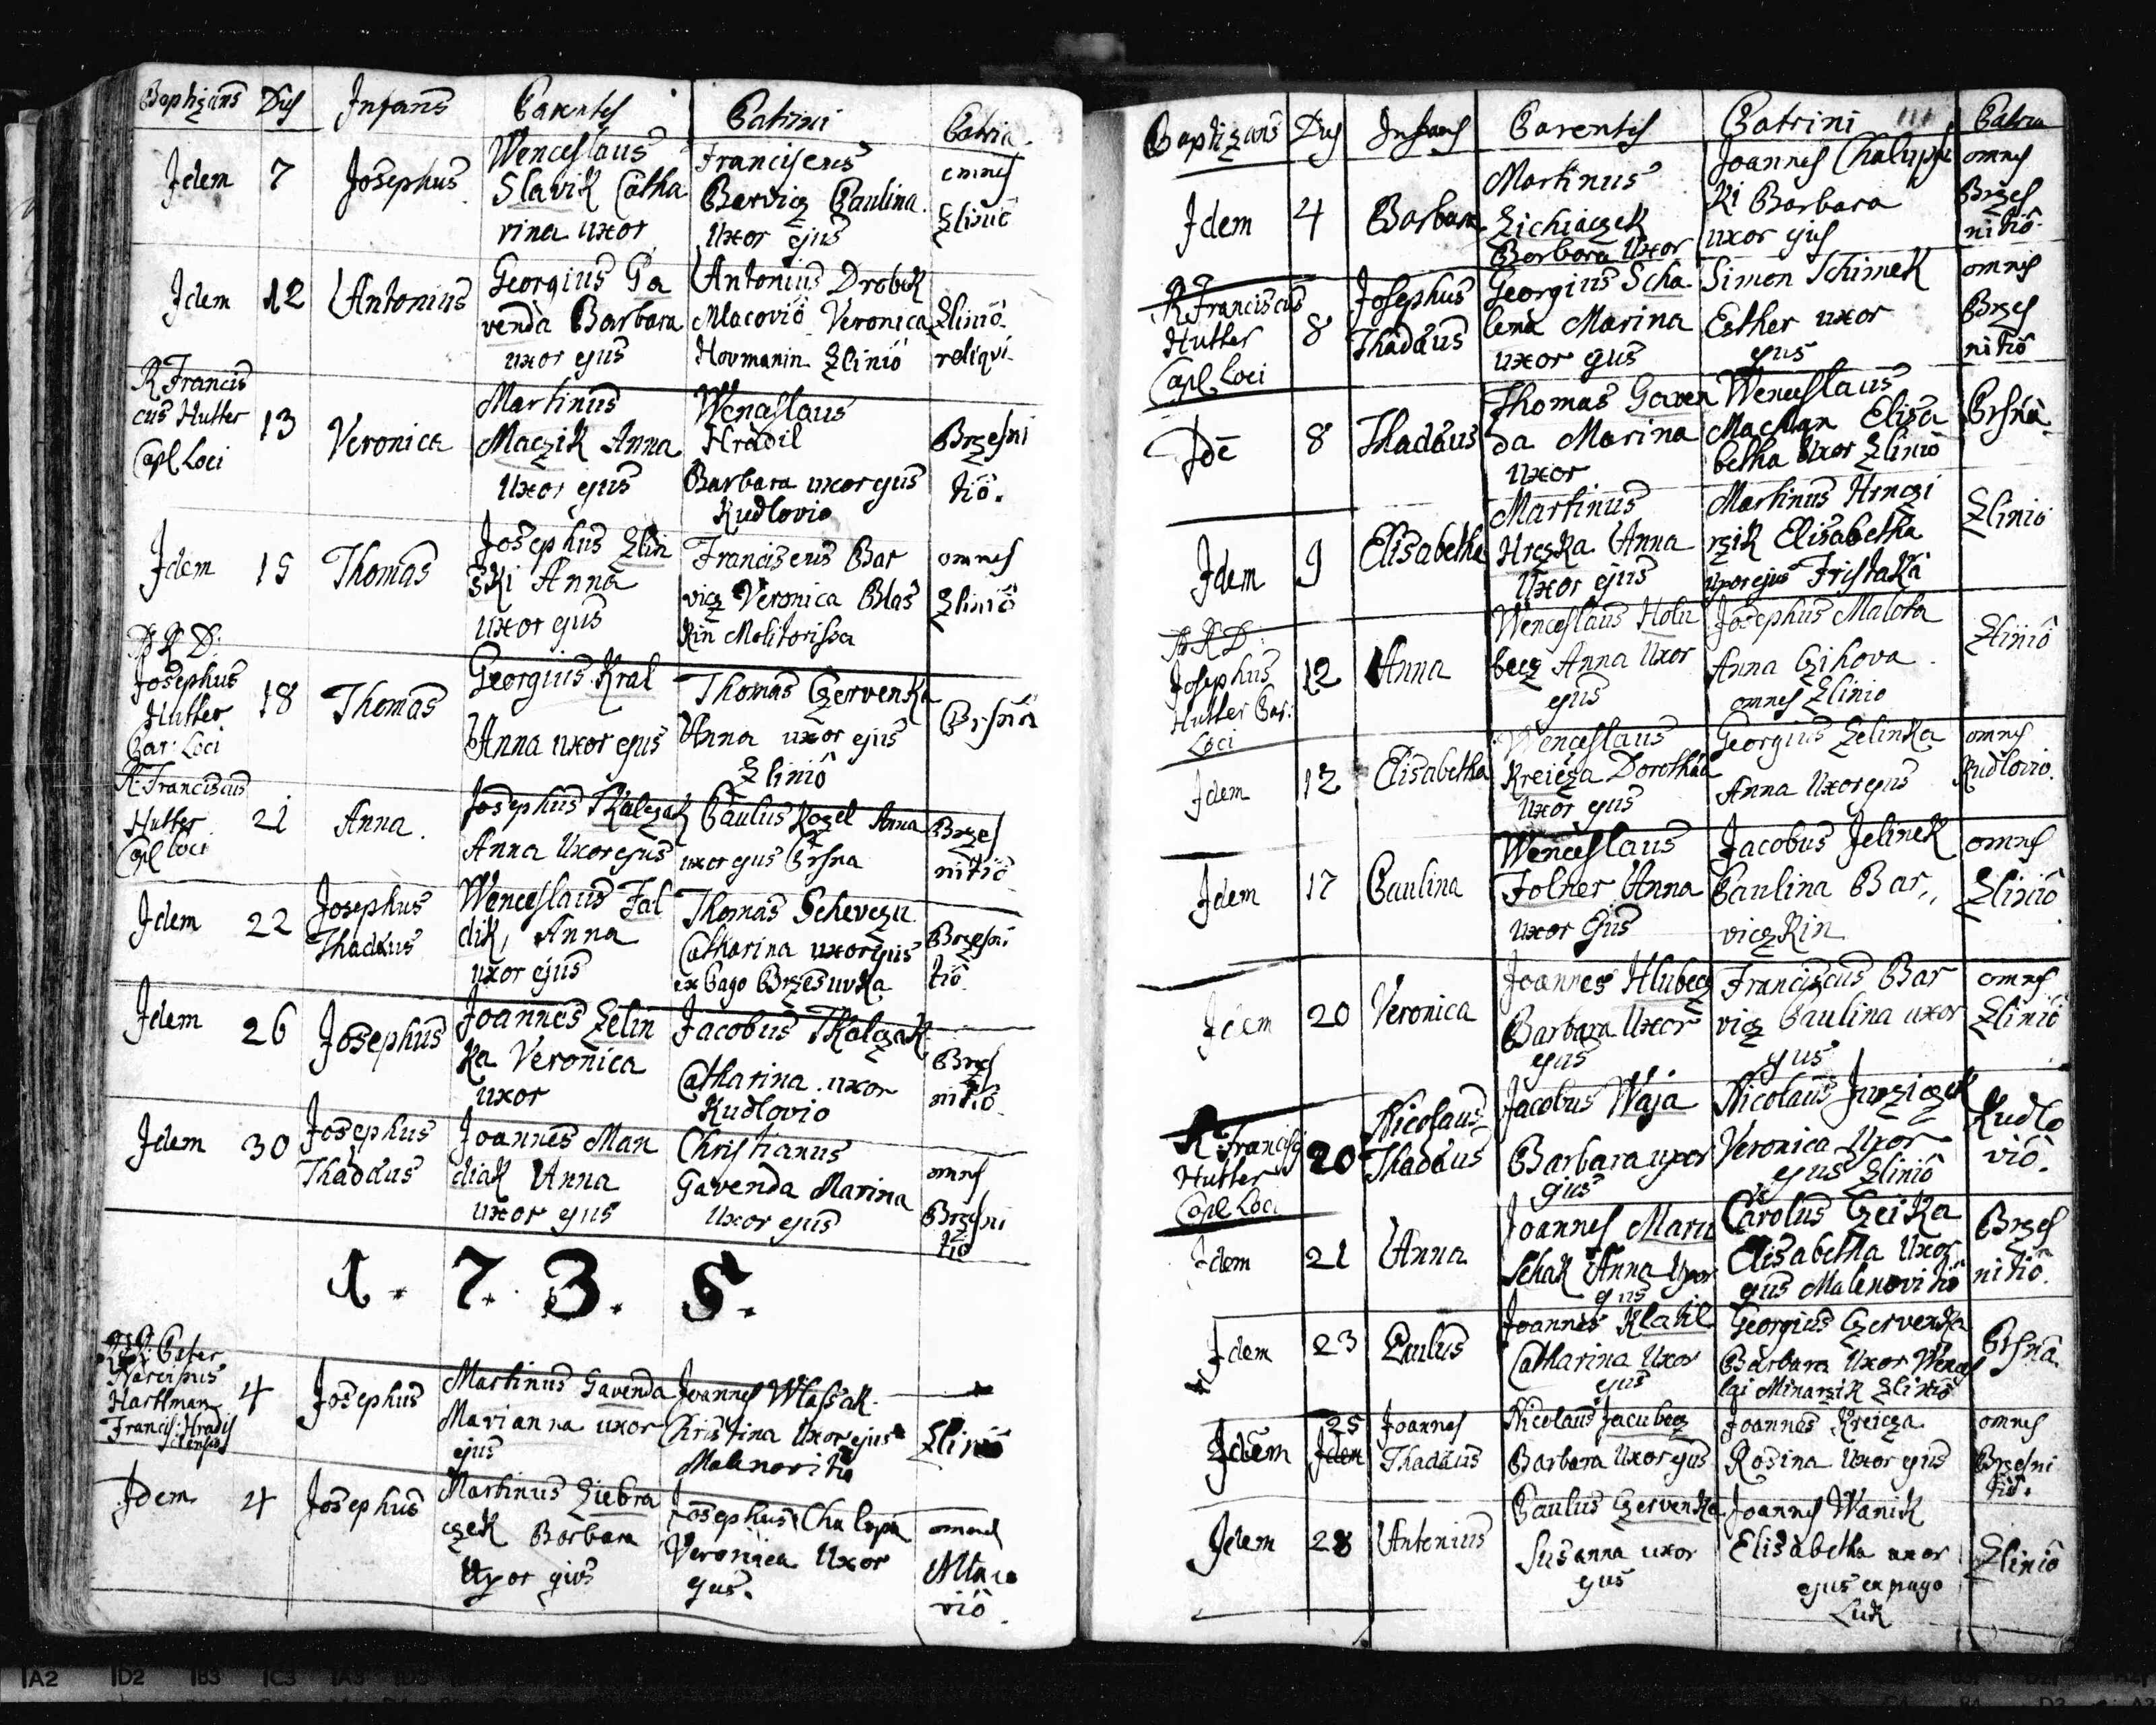 Baptizans Dies Infans Parentes Patrini Patria
Idem 7 Josephus
Wenceslaus
Slavik Catha
rina uxor
Franciscus
Barvicz Paulina
uxor ejus
omnes
Zlinio
Idem 12 Antonius
Georgius Ga
venda Barbara
uxor ejus
Antonius Drobek
Mlacovio Veronica
Hovmanin Zlinio
Zlinio
reliqvi
R Francis
cus Hutter
Capl Loci
13 Veronica
Martinus
Maczik Anna
Uxor ejus
Wenceslaus
Hradil
Barbara uxor ejus
Kudlovio
Brzesni
tio.
Idem 15 Thomas
Josephus Zlin
ski Anna
uxor ejus
Franciscus Bar
vicz Veronica Blas
kin Molitorissa
omnes
Zlinio
A R D:
Josephus
Hutter
Par: Loci
18 Thomas
Georgius Kral
Anna uxor ejus
Thomas Czervenka
Anna uxor ejus
Zlinio
Prsna
R. Franciscus
Hutter
Capl Loci
21 Anna.
Josephus Tkalczak
Anna Uxor ejus
Paulus Kozel Anna
uxor ejus Prsna
Brzes
nitio
Idem 22
Josephus
Thadaus
Wenceslaus Fal
dik, Anna
uxor ejus
Thomas Schevczu
Catharina uxor ejus
ex Pago Brzesuvka
Brzesni
tio.
Idem 26 Josephus
Joannes Zelin
ka Veronica
uxor
Jacobus Tkalczak
Catharina uxor
Kudlovio
Brzes
nitio
Idem 30
Josephus
Thadaus
Joannes Man
diak Anna
uxor ejus
Christianus
Gavenda Marina
Uxor ejus
omnes
Brzesni
tio
1. 7. 3. 5.
Pater
Narcissus
Hartman
Francis: Hradis
tensis
4 Josephus
Martinus Gavenda
Marianna uxor
ejus
Joannes Wlassak
Christina Uxor ejus
Malenovitio
Zlinio
Idem 4 Josephus
Martinus Ziebra
czek Barbara
Uxor ejus
Josephus Chalupa
Veronica Uxor
ejus.
omnes
Mlaco
vio.
111
Baptizans Dies Infans Parentes Patrini Patria
Idem 4 Barbara
Martinus
Zichiaczek
Barbara Uxor
Joannes Chalups
ki Barbara
uxor ejus
omnes
Brzes
nitio
R Franciscus
Hutter
Capl Loci
8
Josephus
Thadaus
Georgius Scha
lena Marina
uxor ejus
Simon Schimek
Esther uxor
ejus
omnes
Brzes
nitio
Ide 8 Thadaus
Thomas Gaven
da Marina
uxor
Wenceslaus
Machlan Elisa
betha Uxor Zlinio
Prsna
Idem 9 Elisabetha
Martinus
Hrczka Anna
Uxor ejus
Martinus Hrnczi
rzik Elisabetha
Uxor ejus Tristaka
Zlinio
A R D:
Josephus
Hutter Par:
Loci
12 Anna
Wenceslaus Holu
becz Anna Uxor
ejus
Josephus Malota
Anna Czihova
omnes Zlinio
Zlinio
Idem 12 Elisabetha
Wenceslaus
Kreicza Dorothaa
Uxor ejus
Georgius Zelinka
Anna Uxor ejus
omnes
Kudlovio.
Idem 17 Paulina
Wenceslaus
Folner Anna
uxor Ejus
Jacobus Jelinek
Paulina Bar,,
viczkin
omnes
Zlinio
Idem 20 Veronica
Joannes Hlubecz
Barbara Uxor
ejus
Franciscus Bar
vicz Paulina uxor
ejus
omnes
Zlinio
R Francis
Hutter
Capl Loci
20
Nicolaus
Thadaus
Jacobus Waja
Barbara uxor
ejus
Nicolaus Jurziczek
Veronica Uxor
ejus Zlinio
Kudlo
vio.
Idem 21 Anna
Joannes Maru
schak Anna Uxor
ejus
Carolus Czeika
Elisabetha Uxor
ejus Malenovitio
Brzes
nitio.
Idem 23 Paulus
Joannes Klatil
Catharina Uxor
ejus
Georgius Czervenka
Barbara Uxor Wences
lai Minarzik Zlinio
Prsna.
Idem 25 Idem
Joannes
Thadaus
Nicolaus Jacubecz
Barbara Uxor ejus
Joannes Kreicza
Rosina Uxor ejus
omnes
Brzesni
tio.
Idem 28 Antonius
Paulus Czervenka
Susanna uxor
ejus
Joannes Wanik
Elisabetha uxor
ejus ex pago
Luk
Zlinio